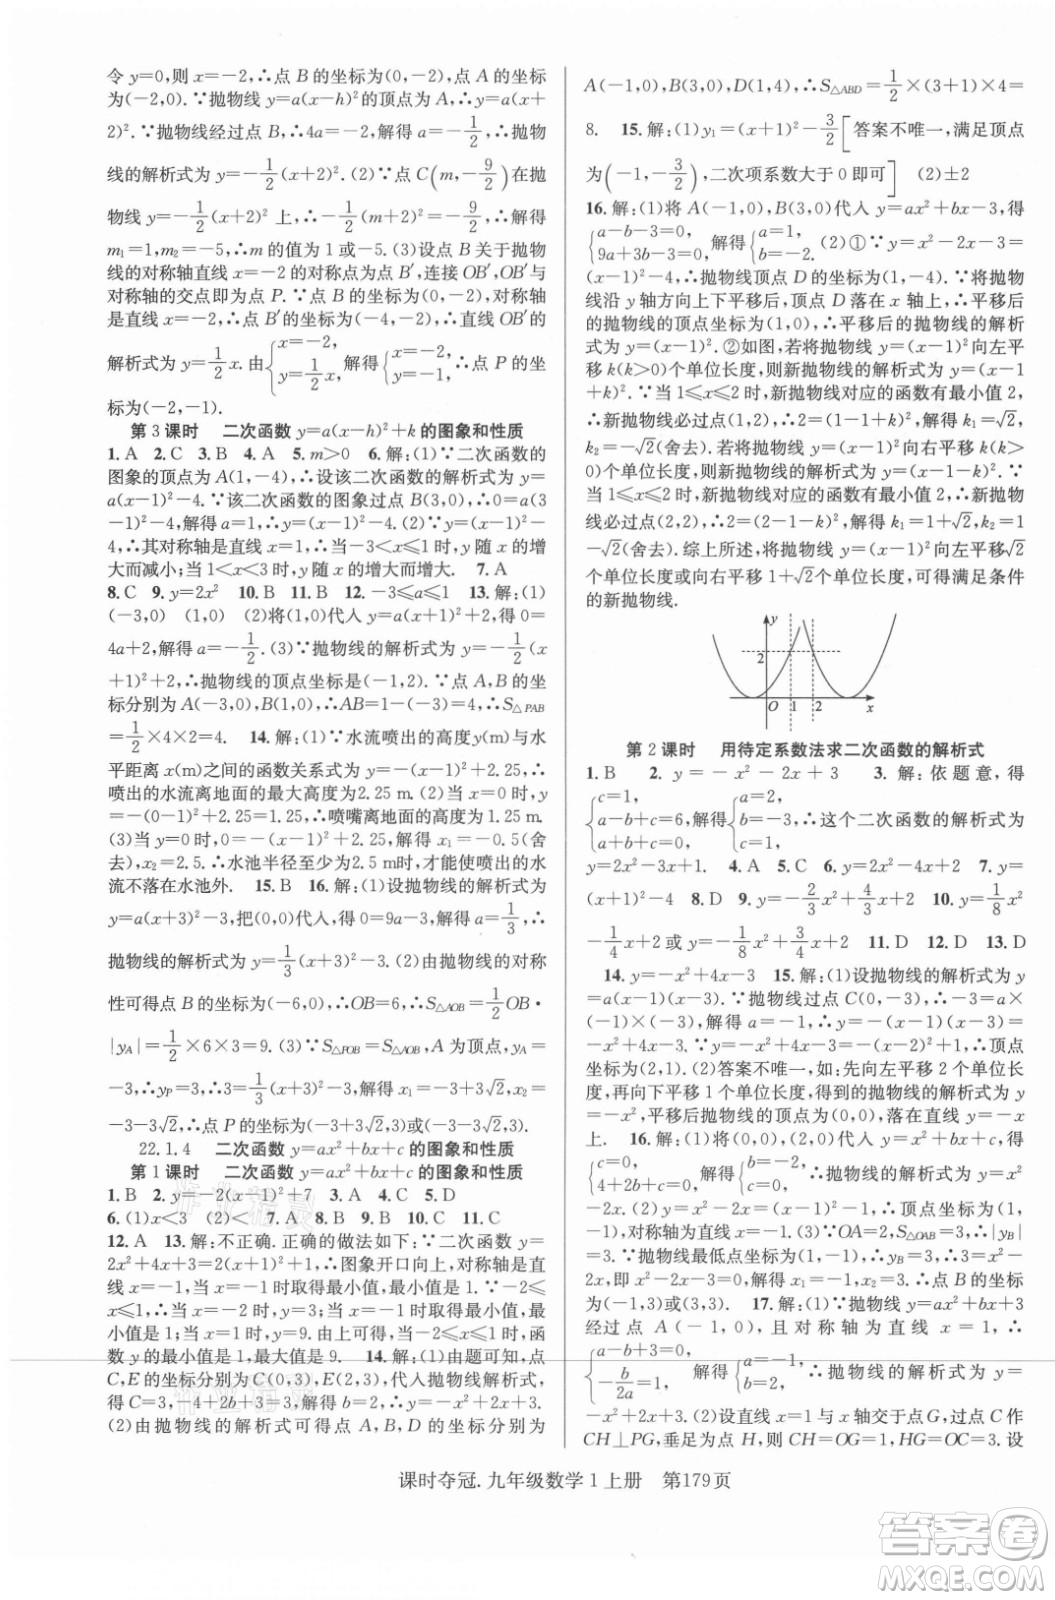 令 y=0,则 x=-2,∴点 B 的坐标为(0,-2),点 A 的坐标
为(-2,0).∵抛物线 y=a(x-h)²的顶点为 A,∴y=a(x+
2)².∵抛物线经过点 B,∴4a=-2,解得 a=-1/2,∴抛物
线的解析式为 y=-1/2(x+2)².(2)∵点 C(m,-9/2)在抛
物线 y=-1/2(x+2)² 上,∴-1/2(m+2)²=-9/2,∴解得
m₁=1,m₂=-5,∴m 的值为 1 或-5.(3)设点 B 关于抛物
线的对称轴直线 x=-2 的对称点为点 B′,连接 OB′,OB′与
对称轴的交点即为点 P.∵点 B 的坐标为(0,-2),对称轴
是直线 x=-2,∴点 B′的坐标为(-4,-2),∴直线 OB′的
解析式为 y=1/2x.由{x=-2, y=1/2x,解得{x=-2, y=-1.∴点 P 的坐
标为(-2,-1).
第 3 课时 二次函数 y=a(x-h)²+k 的图象和性质
1. A 2. C 3. B 4. A 5. m>0 6. 解:(1)∵二次函数的
图象的顶点为 A(1,-4),∴设该二次函数的解析式为 y=
a(x-1)²-4.∵该二次函数的图象过点 B(3,0),∴0=a(3
-1)²-4,解得 a=1,∴y=(x-1)²-4.(2)∵y=(x-1)²-
4,∴其对称轴是直线 x=1,∴当-3<x<1 时,y 随 x 的增
大而减小;当1<x<3 时,y 随 x 的增大而增大. 7. A
8. C 9. y=2x² 10. B 11. B 12. -3≤a≤1 13. 解:(1)
(-3,0) (1,0) (2)将(1,0)代入 y=a(x+1)²+2,得 0=
4a+2,解得 a=-1/2.(3)∵抛物线的解析式为 y=-1/2(x
+1)²+2,∴抛物线的顶点坐标是(-1,2).∵点 A,B 的坐
标分别为 A(-3,0),B(1,0),∴AB=1-(-3)=4,∴S△PAB
=1/2×4×2=4. 14. 解:(1)∵水流喷出的高度y(m)与水
平距离 x(m)之间的函数关系式为 y=-(x-1)²+2.25,∴
喷出的水流离地面的最大高度为 2.25 m.(2)当 x=0 时,y
=-(0-1)²+2.25=1.25,∴喷嘴离地面的高度为 1.25 m.
(3)令 y=0,则 0=-(x-1)²+2.25,解得 x₁=-0.5(舍
去),x₂=2.5,∴水池半径至少为2.5 m时,才能使喷出的水
流不落在水池外. 15. B 16. 解:(1)设抛物线的解析式为
y=a(x+3)²-3,把(0,0)代入,得 0=9a-3,解得 a=1/3,∴
抛物线的解析式为 y=1/3(x+3)²-3.(2)由抛物线的对称
性可得点 B 的坐标为(-6,0),∴OB=6,∴S△AOB=1/2OB·
|yA|=1/2×6×3=9.(3)∵S△POB=S△AOB,A 为顶点,yA=
-3,∴yP=3,∴3=1/3(x+3)²-3,解得 x₁=-3+3√2,x₂=
-3-3√2,∴点 P 的坐标为(-3+3√2,3)或(-3-3√2,3).
22.1.4 二次函数 y=ax²+bx+c 的图象和性质
第 1 课时 二次函数 y=ax²+bx+c 的图象和性质
1. B 2. y=-2(x-1)²+7 3. A 4. C 5. D
6. (1)x<3 (2)<2 7. B 8. D 9. B 10. C 11. C
12. A 13. 解:不正确.正确的做法如下:∵二次函数 y=
2x²+4x+1=2(x+1)²-1,∴图象开口向上,对称轴是直
线x=-1,当x=-1时取得最小值,最小值是-1.∵-2≤
x≤1,∴当 x=-1 时取得最小值,当 x=1 时取得最大值,最
小值为-1,最大值为 2+4+1=7,∴当-2≤x≤1 时,二次函
数 y 的最小值是-1,最大值是 7. 14. 解:(1)由题可知,点
C,E 的坐标分别为 C(0,3),E(2,3),代入抛物线解析式,得
(2)由抛物线的解析式可得点 A, B, D 的坐标分别为
A(-1,0),B(3,0),D(1,4),∴S△ABD=1/2×(3+1)×4=
8. 15. 解:(1)y₁=(x+1)²-3/2[答案不唯一,满足顶点
为(-1,-3/2),二次项系数大于 0 即可] (2)±2
16. 解:(1)将 A(-1,0),B(3,0)代入 y=ax²+bx-3,得
{a-b-3=0, 9a+3b-3=0,解得{a=1, b=-2.(2)①∵y=x²-2x-3=
(x-1)²-4,∴抛物线顶点 D 的坐标为(1,-4).∵将抛物
线沿 y 轴方向上下平移,使顶点 D 落在 x 轴上,∴平移后
抛物线的顶点坐标为(1,0),∴平移后的抛物线的解析
式为 y=(x-1)².②如图,若将抛物线 y=(x-1)²向左平
移 k(k>0)个单位长度,则新抛物线的解析式为 y=(x-1
+k)².∵当 1≤x≤2 时,新抛物线对应的函数有最小值 2,
∴新抛物线必过点(1,2),∴2=(1-1+k)²,解得 k₁=√2,
k₂=-√2(舍去).若将抛物线 y=(x-1)²向右平移 k(k>0)
个单位长度,则新抛物线的解析式为 y=(x-1-k)².∵
当 1≤x≤2 时,新抛物线对应的函数有最小值 2,∴新抛物
线必过点(2,2),∴2=(2-1-k)²,解得 k₁=1+√2,k₂=1
-√2(舍去).综上所述,将抛物线 y=(x-1)²向左平移√2
个单位长度或向右平移 1+√2个单位长度,可得满足条件
的新抛物线.
y
2
O 1 2 x
第 2 课时 用待定系数法求二次函数的解析式
1. B 2. y=-x²-2x+3 3. 解:依题意,得
{c=1, a+b+c=6, a-b+c=0,解得{a=2, b=-3... 
y=2x²-3x+1. 4. A 5. A 6. y=2x²-4x+4 7. y=
(x+1)²-4 8. D 9. y=-2/3x²+4/3x+2 10. y=1/8x²
-1/4x+2 或 y=-1/8x²+3/4x+2 11. D 12. D 13. D
14. y=-x²+4x-3 15. 解:(1)设抛物线的解析式为 y=
a(x-1)(x-3).∵抛物线过点 C(0,-3),∴-3=a×
(-1)×(-3),解得 a=-1,∴y=-(x-1)(x-3)=
-x²+4x-3.∵y=-x²+4x-3=-(x-2)²+1,∴顶点坐标
为(2,1).(2)答案不唯一,如:先向左平移 2 个单位长
度,再向下平移 1 个单位长度,得到的抛物线的解析式为
y=-x²,平移后抛物线的顶点为(0,0),落在直线 y=-x
上. 16. 解:(1)将(0,0),(2,0)代入 y=x²+bx+c,得
{c=0, 4+2b+c=0,解得{b=-2, c=0,∴抛物线的解析式为 y=x²
-2x.(2)∵y=x²-2x=(x-1)²-1,∴顶点坐标为(1,
-1),对称轴为直线 x=1.(3)∵OA=2,S△OAB=3,∴|yB|
=3.∵抛物线最低点坐标为(1,-1),∴yB=3,∴3=x²-
2x,即 x²-2x-3=0,解得 x₁=-1,x₂=3,∴点 B 的坐标
为(-1,3)或(3,3). 17. 解:(1)∵抛物线 y=ax²+bx+3
经过点 A(-1,0),且对称轴为直线 x=1,∴
{a-b+3=0, -b/2a=1,解得{a=-1, b=2,∴抛物线的解析式为 y=
-x²+2x+3.(2)设直线 x=1 与 x 轴交于点 G,过点 C 作
CH⊥PG,垂足为点 H,则 CH=OG=1,HG=OC=3.设
课时夺冠.九年级数学 1 上册 第179页
答案卷
MMXQE.COM